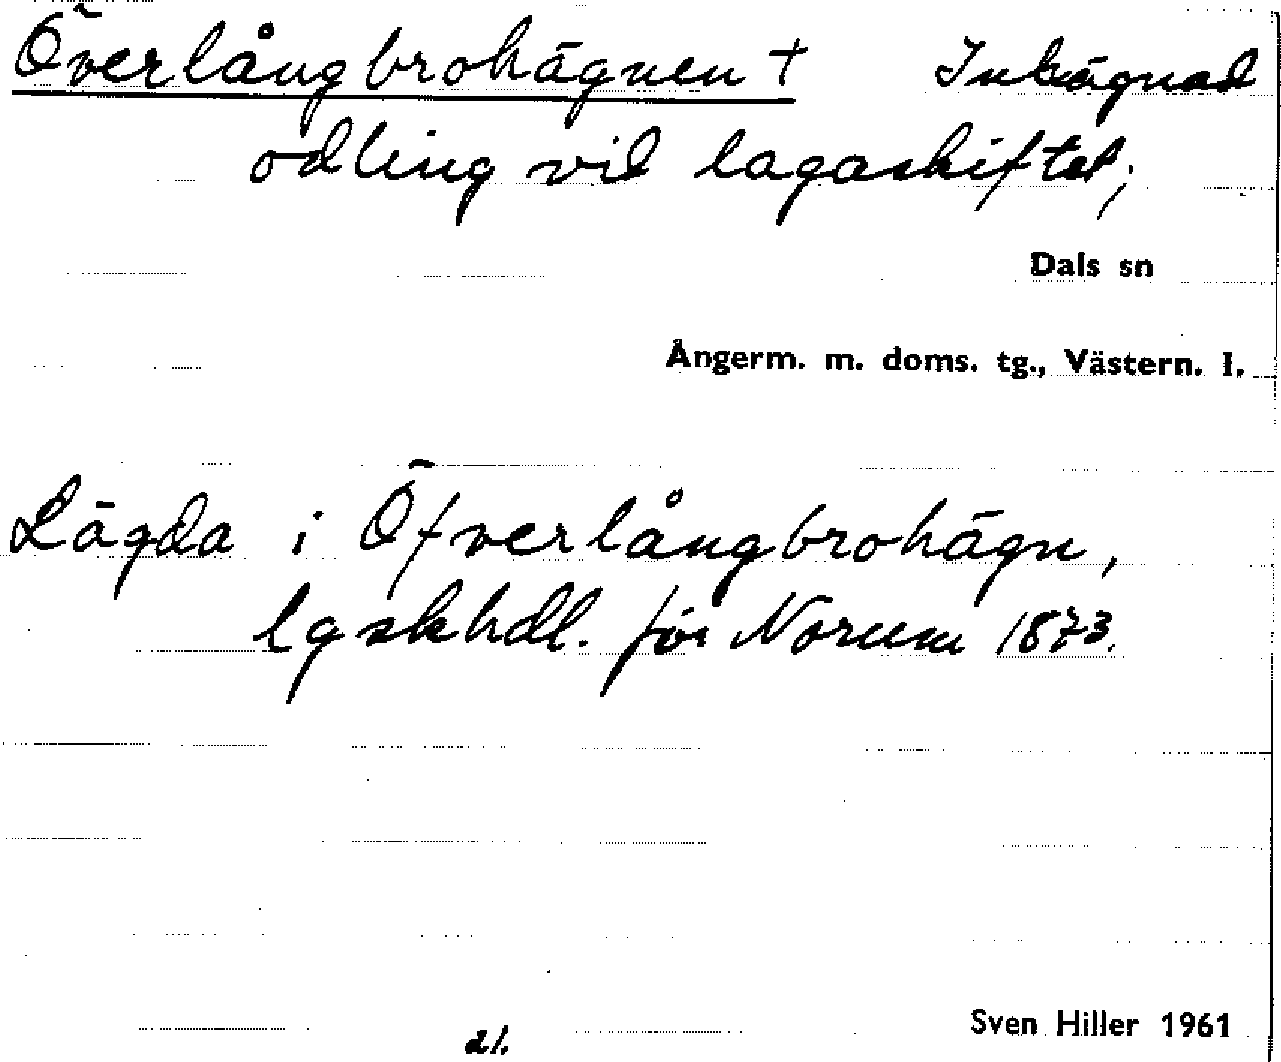 Överlångbrohägnen † Inhägnad
odling vid lagaskiftet;
Dals sn
Ångerm. m. doms. tg., Västern. l.
Lägda i Öfverlångbrohägn,
lgskhdl. för Norum 1873.
al.
Sven Hiller 1961